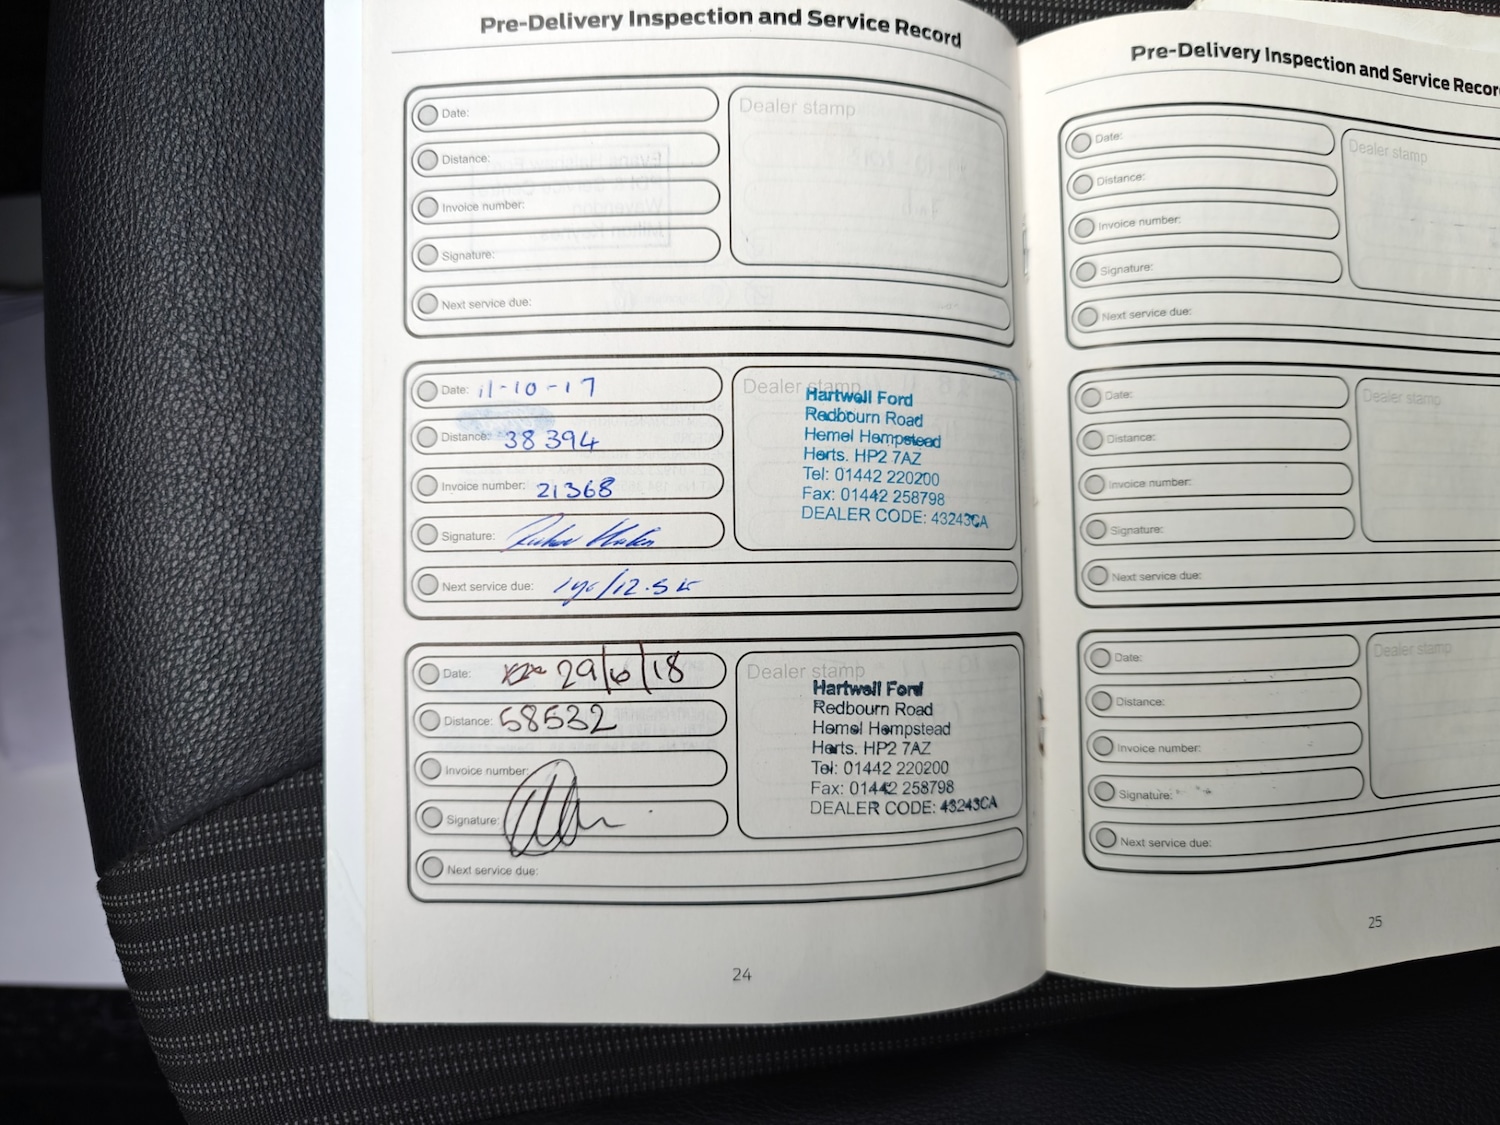 Pre-Delivery Inspection and Service Record
Date:
Distance:
Invoice number:
Signature:
Next service due:
Dealer stamp
Date: 11-10-17
Distance: 38394
Invoice number: 21368
Signature:
Next service due: 1yr/12.5k
Dealer stamp
Hartwell Ford
Redbourn Road
Hemel Hempstead
Herts. HP2 7AZ
Tel: 01442 220200
Fax: 01442 258798
DEALER CODE: 43243CA
Date: 29/6/18
Distance: 58532
Invoice number:
Signature:
Next service due:
Dealer stamp
Hartwell Ford
Redbourn Road
Hemel Hempstead
Herts. HP2 7AZ
Tel: 01442 220200
Fax: 01442 258798
DEALER CODE: 43243CA
24
Pre-Delivery Inspection and Service Recor
Date:
Distance:
Invoice number:
Signature:
Next service due:
Dealer stamp
Date:
Distance:
Invoice number:
Signature:
Next service due:
Dealer stamp
Date:
Distance:
Invoice number:
Signature:
Next service due:
Dealer stamp
25